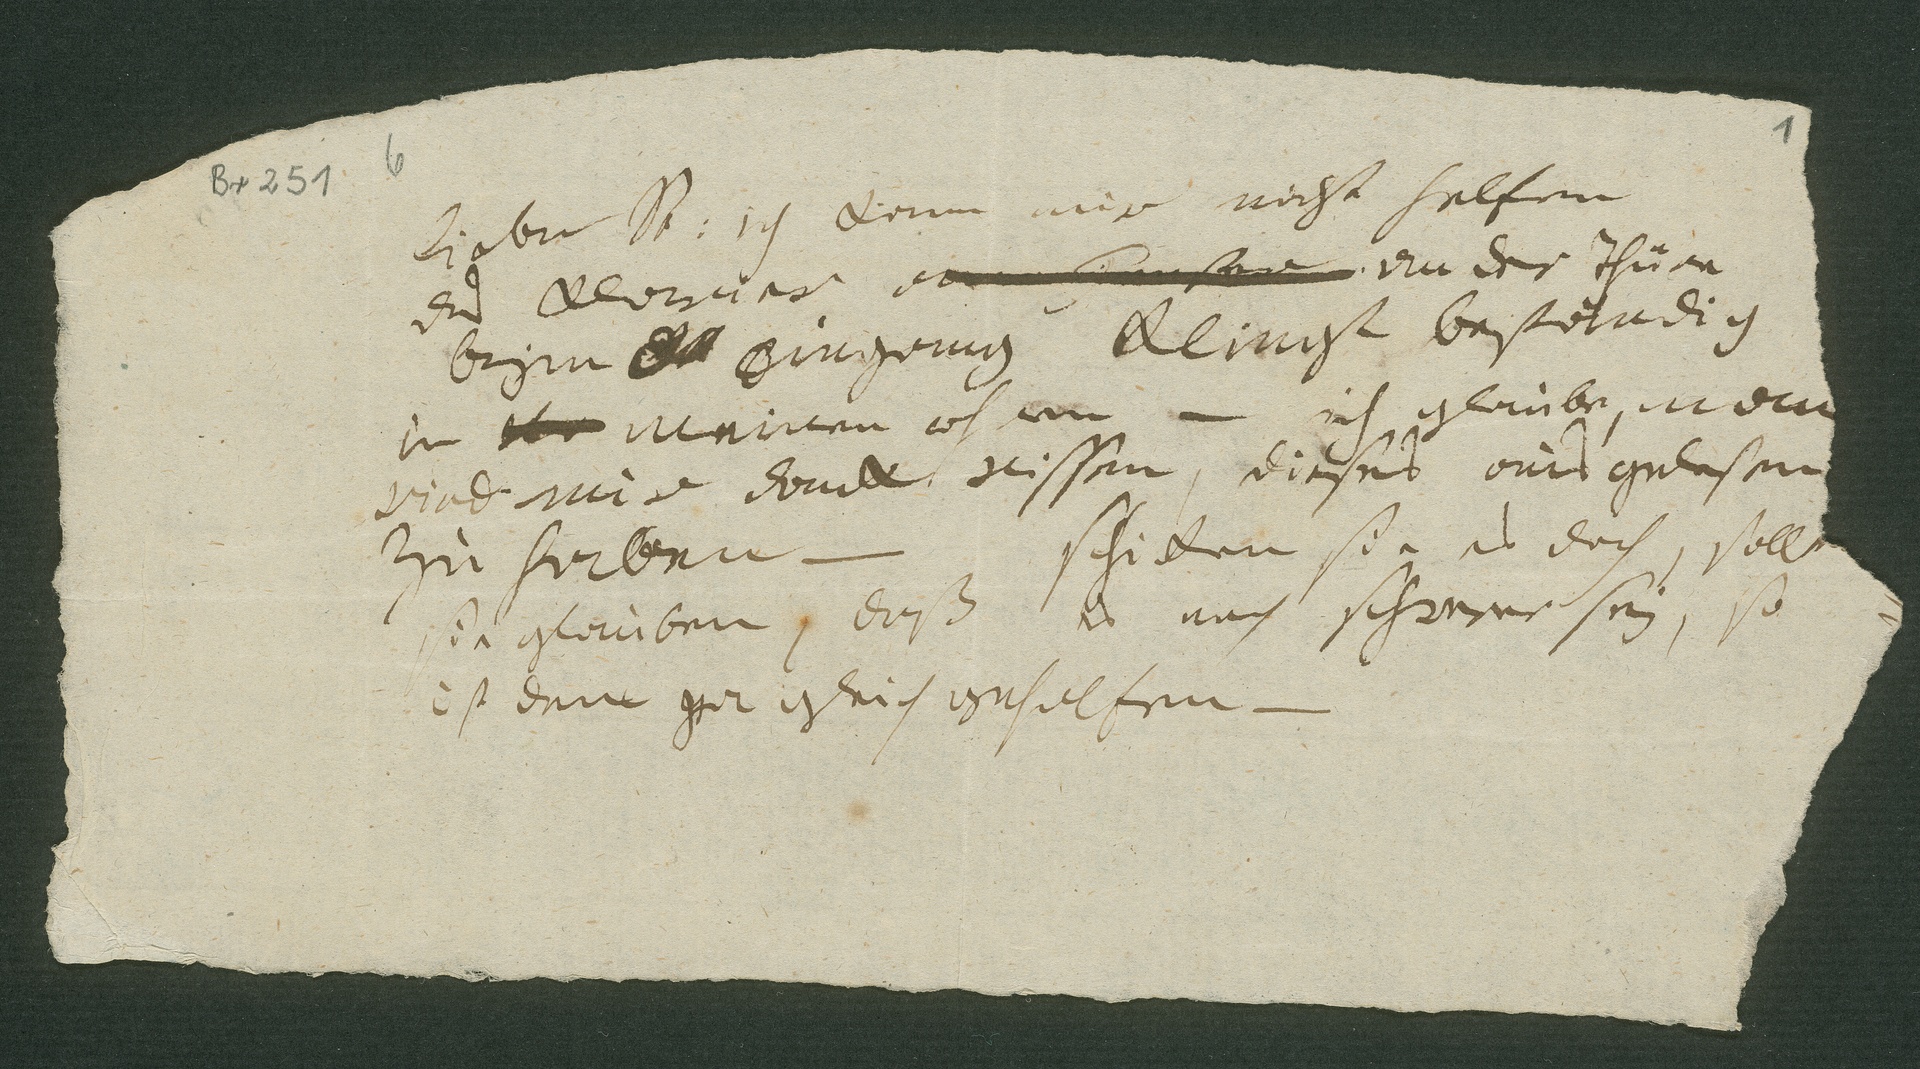 Br 251 6 1
Lieber St: ich kann mir nicht helfen
das Klawier an der Thüre
beym Eingang klingt beständig
in meinen ohren — ich glaube, man
wird mir dank wissen, dieses ausgelesen
zu haben — schiken sie es doch, sollt
sie glauben, daß es auch schwerer sey, so
ist dem gar gleich geholfen —